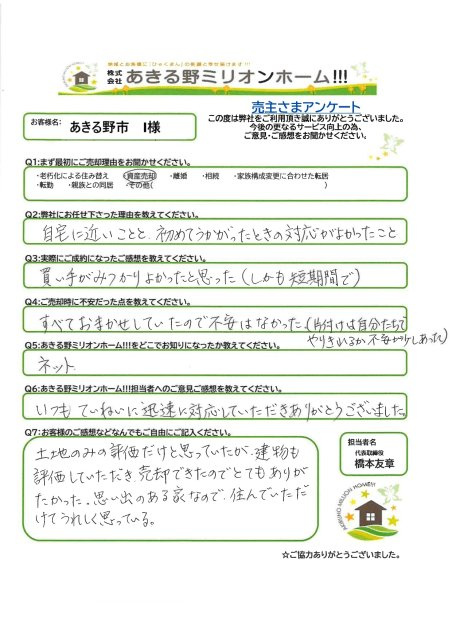 地域とお客様に「ひゃくまん」の笑顔と幸せ届けます!!!
株式会社 あきる野ミリオンホーム!!!
売主さまアンケート
お客様名: あきる野市 I様
この度は弊社をご利用頂き誠にありがとうございました。
今後の更なるサービス向上の為、
ご意見・ご感想をお聞かせください。
Q1:まず最初にご売却理由をお聞かせください。
・老朽化による住み替え ・資産売却 ・離婚 ・相続 ・家族構成変更に合わせた転居
・転勤 ・親族との同居 ・その他( )
Q2:弊社にお任せ下さった理由を教えてください。
自宅に近いことと、初めてうかがったときの対応がよかったこと
Q3:実際にご成約になったご感想を教えてください。
買い手がみつかりよかったと思った(しかも短期間で)
Q4:ご売却時に不安だった点を教えてください。
すべておまかせしていたので不安はなかった(片付けは自分たちで
やりきれるか不安が少しあった)
Q5:あきる野ミリオンホーム!!!をどこでお知りになったか教えてください。
ネット
Q6:あきる野ミリオンホーム!!!担当者へのご意見ご感想を教えてください。
いつもていねいに迅速に対応していただきありがとうございました。
Q7:お客様のご感想などなんでもご自由にご記入ください。
土地のみの評価だけと思っていたが、建物も
評価していただき売却できたのでとてもありが
たかった。思い出のある家なので、住んでいただ
けてうれしく思っている。
担当者名
代表取締役
橋本友章
AKIRUNO MILLION HOME!!!
☆ご協力ありがとうございました。